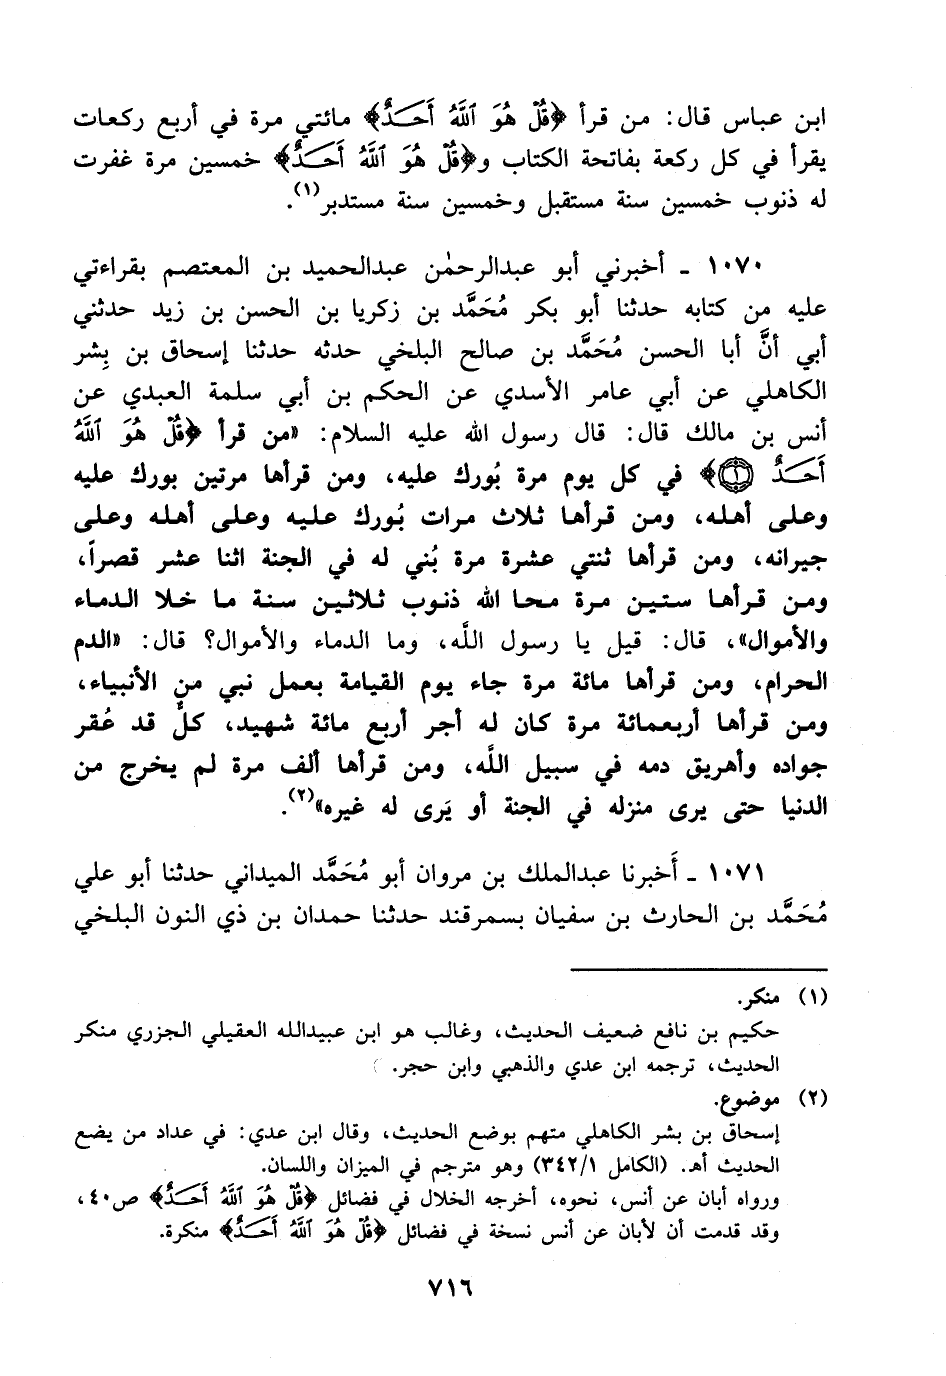 ابن عباس قال: من قرأ ﴿قُلْ هُوَ ٱللَّهُ أَحَدٌ﴾ مائتي مرة في أربع ركعات
يقرأ في كل ركعة بفاتحة الكتاب و﴿قُلْ هُوَ ٱللَّهُ أَحَدٌ﴾ خمسين مرة غفرت
له ذنوب خمسين سنة مستقبل وخمسين سنة مستدبر(١).
١٠٧٠ ـ أخبرني أبو عبدالرحمٰن عبدالحميد بن المعتصم بقراءتي
عليه من كتابه حدثنا أبو بكر مُحَمَّد بن زكريا بن الحسن بن زيد حدثني
أبي أنَّ أبا الحسن مُحَمَّد بن صالح البلخي حدثه حدثنا إسحاق بن بِشر
الكاهلي عن أبي عامر الأسدي عن الحكم بن أبي سلمة العبدي عن
أنس بن مالك قال: قال رسول الله عليه السلام: «من قرأ ﴿قُلْ هُوَ ٱللَّهُ
أَحَدٌ ۝١﴾ في كل يوم مرة بُورك عليه، ومن قرأها مرتين بورك عليه
وعلى أهله، ومن قرأها ثلاث مرات بُورك عليه وعلى أهله وعلى
جيرانه، ومن قرأها ثنتي عشرة مرة بُني له في الجنة اثنا عشر قصراً،
ومن قرأها ستين مرة محا الله ذنوب ثلاثين سنة ما خلا الدماء
والأموال»، قال: قيل يا رسول اللَّه، وما الدماء والأموال؟ قال: «الدم
الحرام، ومن قرأها مائة مرة جاء يوم القيامة بعمل نبي من الأنبياء،
ومن قرأها أربعمائة مرة كان له أجر أربع مائة شهيد، كلٌّ قد عُقر
جواده وأهريق دمه في سبيل اللَّه، ومن قرأها ألف مرة لم يخرج من
الدنيا حتى يرى منزله في الجنة أو يَرى له غيره»(٢).
١٠٧١ ـ أَخبرنا عبدالملك بن مروان أبو مُحَمَّد الميداني حدثنا أبو علي
مُحَمَّد بن الحارث بن سفيان بسمرقند حدثنا حمدان بن ذي النون البلخي
(١) منكر.
حكيم بن نافع ضعيف الحديث، وغالب هو ابن عبيدالله العقيلي الجزري منكر
الحديث، ترجمه ابن عدي والذهبي وابن حجر.
(٢) موضوع.
إسحاق بن بشر الكاهلي متهم بوضع الحديث، وقال ابن عدي: في عداد من يضع
الحديث أهـ. (الكامل ٣٤٢/١) وهو مترجم في الميزان واللسان.
ورواه أبان عن أنس، نحوه، أخرجه الخلال في فضائل ﴿قُلْ هُوَ ٱللَّهُ أَحَدٌ﴾ ص٤٠،
وقد قدمت أن لأبان عن أنس نسخة في فضائل ﴿قُلْ هُوَ ٱللَّهُ أَحَدٌ﴾ منكرة.
٧١٦